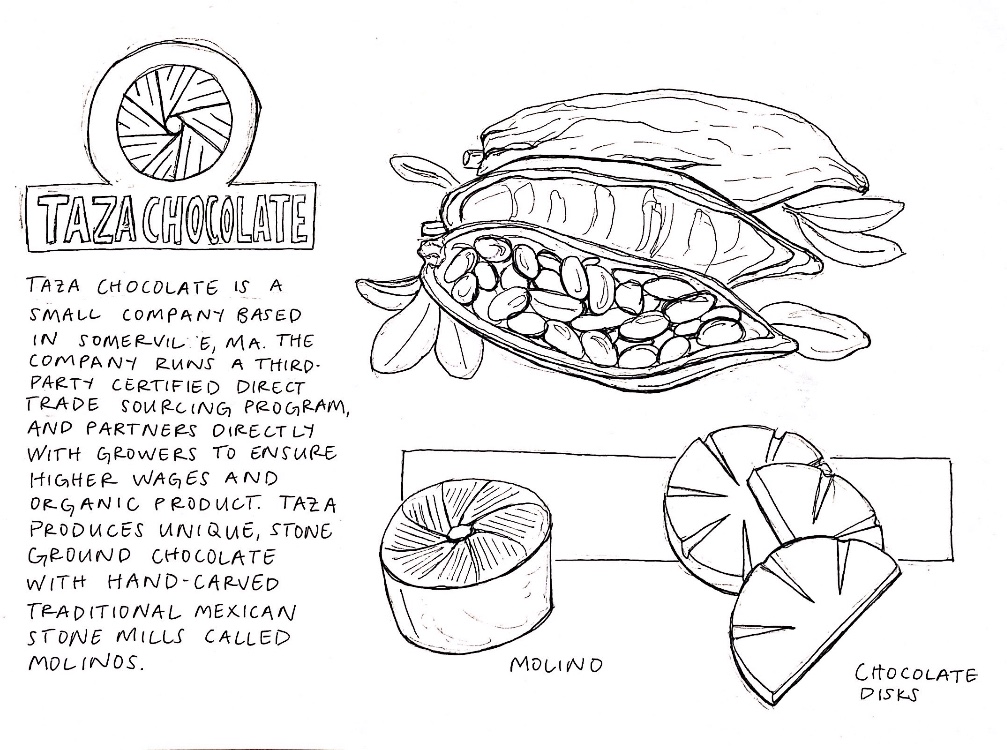 TAZA CHOCOLATE
TAZA CHOCOLATE IS A
SMALL COMPANY BASED
IN SOMERVIL E, MA. THE
COMPANY RUNS A THIRD-
PARTY CERTIFIED DIRECT
TRADE SOURCING PROGRAM,
AND PARTNERS DIRECTLY
WITH GROWERS TO ENSURE
HIGHER WAGES AND
ORGANIC PRODUCT. TAZA
PRODUCES UNIQUE, STONE
GROUND CHOCOLATE
WITH HAND-CARVED
TRADITIONAL MEXICAN
STONE MILLS CALLED
MOLINOS.
MOLINO
CHOCOLATE
DISKS